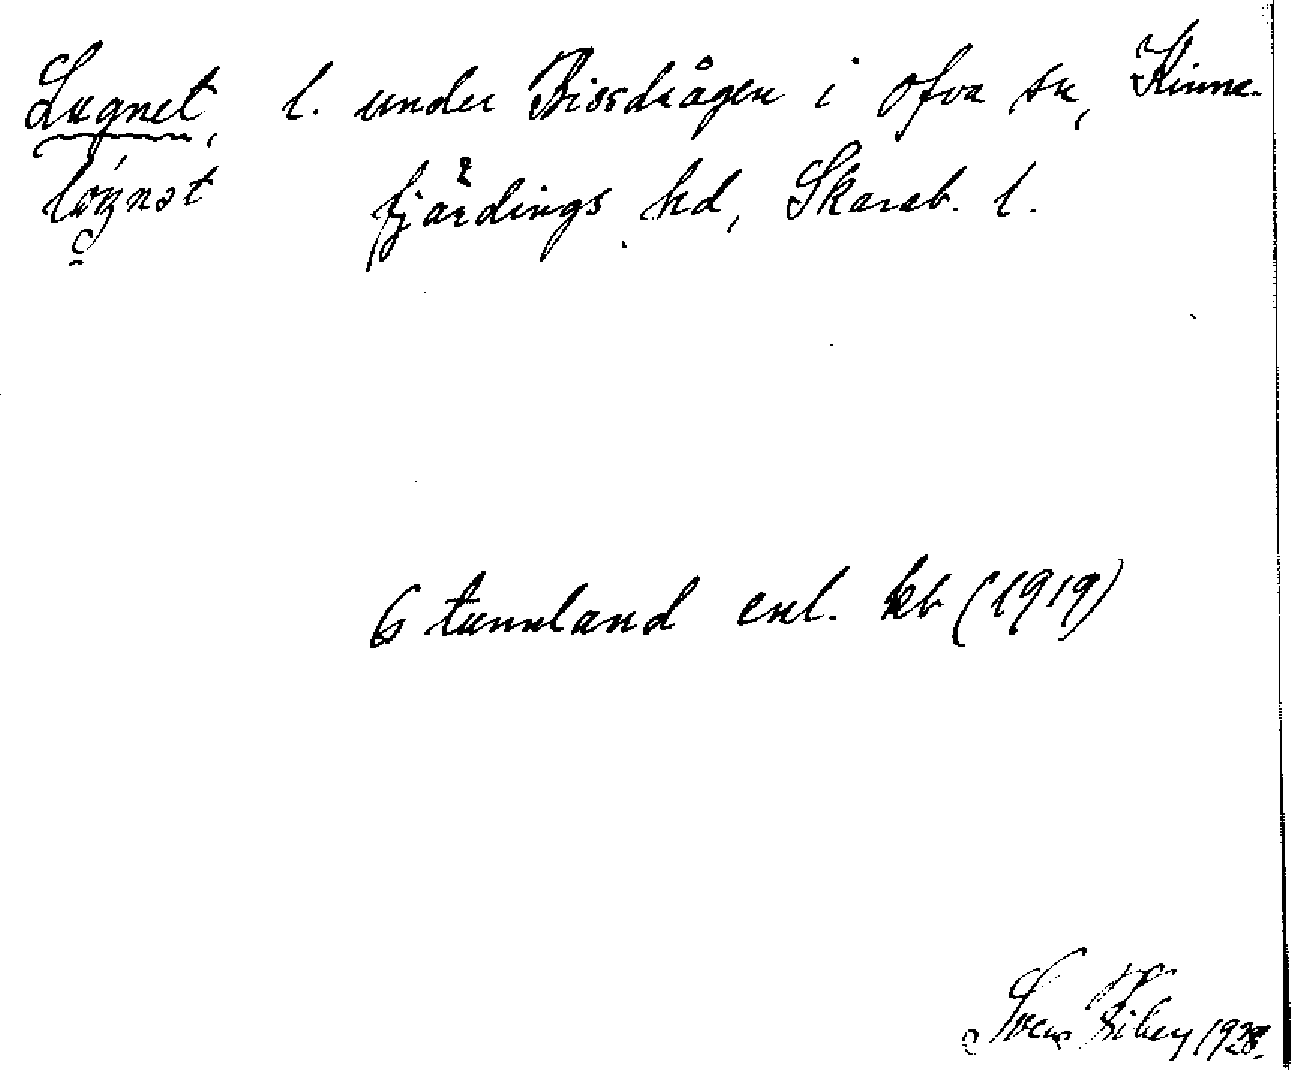 Lugnet, l. under Bissdrågen i Ofva sn, Kinne-
fjärdings hd, Skarab. l.
6 tunnland enl. kb (1919)
Sven 1928.